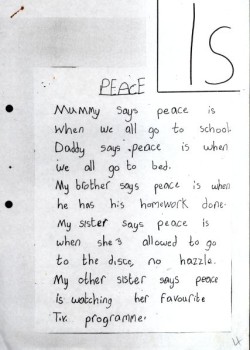 Is
PEACE
Mummy says peace is
when we all go to school.
Daddy says peace is when
we all go to bed.
My brother says peace is when
he has his homework done.
My sister says peace is
when she's allowed to go
to the disco, no hazzle.
My other sister says peace
is watching her favourite
T.v. programme.